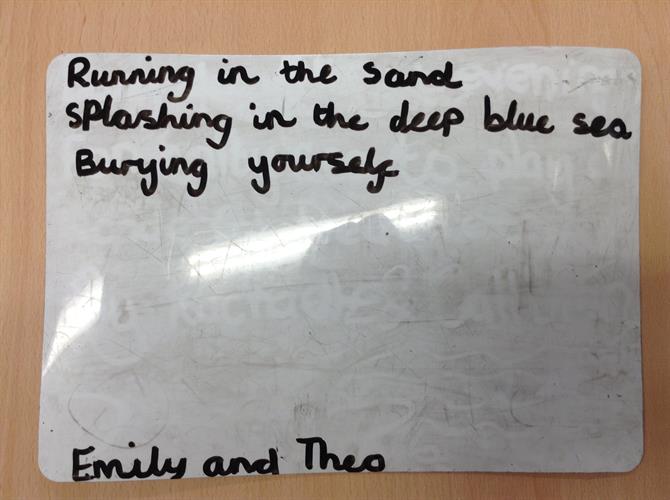 Running in the sand
Splashing in the deep blue sea
Burying yourself
Emily and Theo